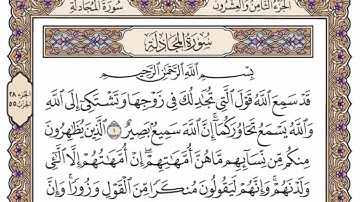 الجُزْءُ الثَّامِنُ وَالعِشْرُونَ
سُورَةُ المُجَادلَةِ
سُورَةُ المُجَادلَةِ
الجزء ٢٨
الحزب ٥٥
بِسْمِ اللَّهِ الرَّحْمَٰنِ الرَّحِيمِ
قَدْ سَمِعَ اللَّهُ قَوْلَ الَّتِي تُجَٰدِلُكَ فِي زَوْجِهَا وَتَشْتَكِي إِلَى اللَّهِ
وَاللَّهُ يَسْمَعُ تَحَاوُرَكُمَا إِنَّ اللَّهَ سَمِيعٌ بَصِيرٌ ١ الَّذِينَ يُظَٰهِرُونَ
مِنكُم مِّن نِّسَآئِهِم مَّا هُنَّ أُمَّهَٰتِهِمْ إِنْ أُمَّهَٰتُهُمْ إِلَّا الَّٰٓـِٔي
وَلَدْنَهُمْ وَإِنَّهُمْ لَيَقُولُونَ مُنكَرًا مِّنَ الْقَوْلِ وَزُورًا وَإِنَّ